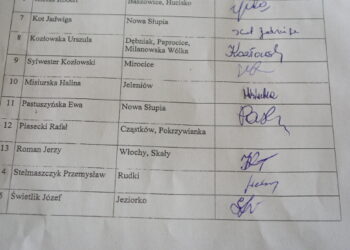 Baszowice, Huzisko
7 Kot Jadwiga Nowa Słupia
8 Kozłowska Urszula Dębniak, Paprocice,
Milanowska Wólka
9 Sylwester Kozłowski Mirocice
10 Misiurska Halina Jeleniów
11 Pastuszyńska Ewa Nowa Słupia
12 Piasecki Rafał Cząstków, Pokrzywianka
13 Roman Jerzy Włochy, Skały
4 Stelmaszczyk Przemysław Rudki
5 Świetlik Józef Jeziorko